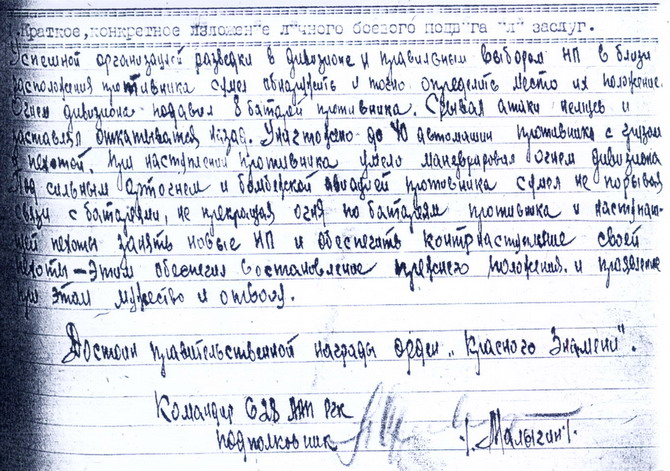 Краткое, конкретное изложение личного боевого подвига или заслуг.
Успешной организацией разведки в дивизионе и правильным выбором НП в близи
расположения противника сумел обнаружить и точно определить место их положение.
Огнем дивизиона подавил 8 батарей противника. Срывая атаки немцев и
заставлял откатываться назад. Уничтожено до 40 автомашин противника с грузом
и пехотой. При наступлении противника умело маневрировал огнем дивизиона
Под сильным артогнем и бомбежкой авиацией противника сумел не порывая
связи с батареями, не прекращая огня по батареям противника и наступаю-
щей пехоты занять новые НП и обеспечить контрнаступление своей
пехоты – Этим обеспечил востановление прежнего положения. и проявление
при этом мужество и отвагу.
Достоин правительственной награды орден „Красного Знамени".
Командир 628 АП РГК
подполковник /Малыгин/.